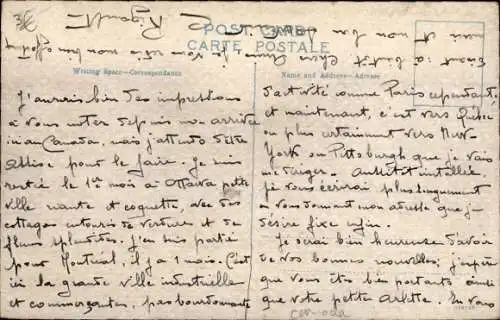 3€
POST CARD
CARTE POSTALE
Writing Space—Correspondance
Name and Address—Adresse
J'aurais bien des impressions
à vous noter depuis mon arrivée
ici au Canada, mais j'attends d'être
assise pour le faire. Je suis
restée le 1er mois à Ottawa petite
ville vante et coquette avec des
cottages entourés de verdure et de
fleurs splendides. J'en suis partie
pour Montréal, il y a 1 mois. C'est
ici la grande ville industrielle
et commerçante, pas bourdonnante
d'activité comme Paris cependant
et maintenant, c'est vers Québec
ou plus certainement vers New
York ou Pittsburgh que je vais
me diriger. Aussitôt installée
je vous écrirai plus longuement
en vous donnant mon adresse que je
désire fixe enfin.
Je serai bien heureuse d'avoir
de vos bonnes nouvelles; j'espère
que vous êtes bien portants ainsi
que votre petite Arlette. En vous
canada